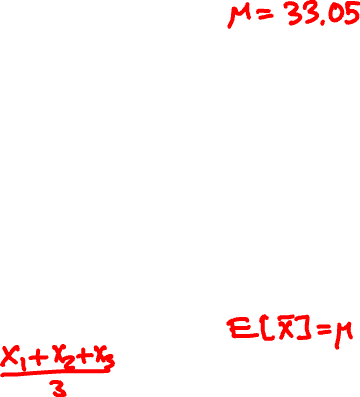 μ = 33.05
E[x̄] = μ
x₁+x₂+x₃
3